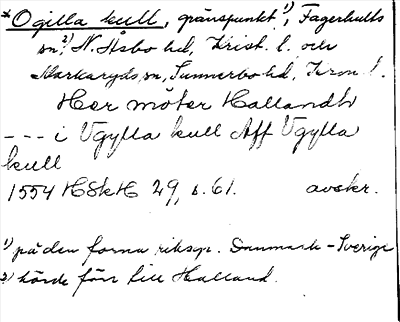 *Ogilla kull, gränspunkt 1), Fagerhults
sn, 2) N. Åsbo hd, Krist. l. och
Markaryds sn, Sunnerbo hd, Kron. l.
Her möter Hallandh
--- i Vgylla kull Aff Vgylla
kull
1554 HSkH 29, s. 61. avskr.
1) på den forna riksgr. Danmark-Sverige
2) hörde förr till Halland.